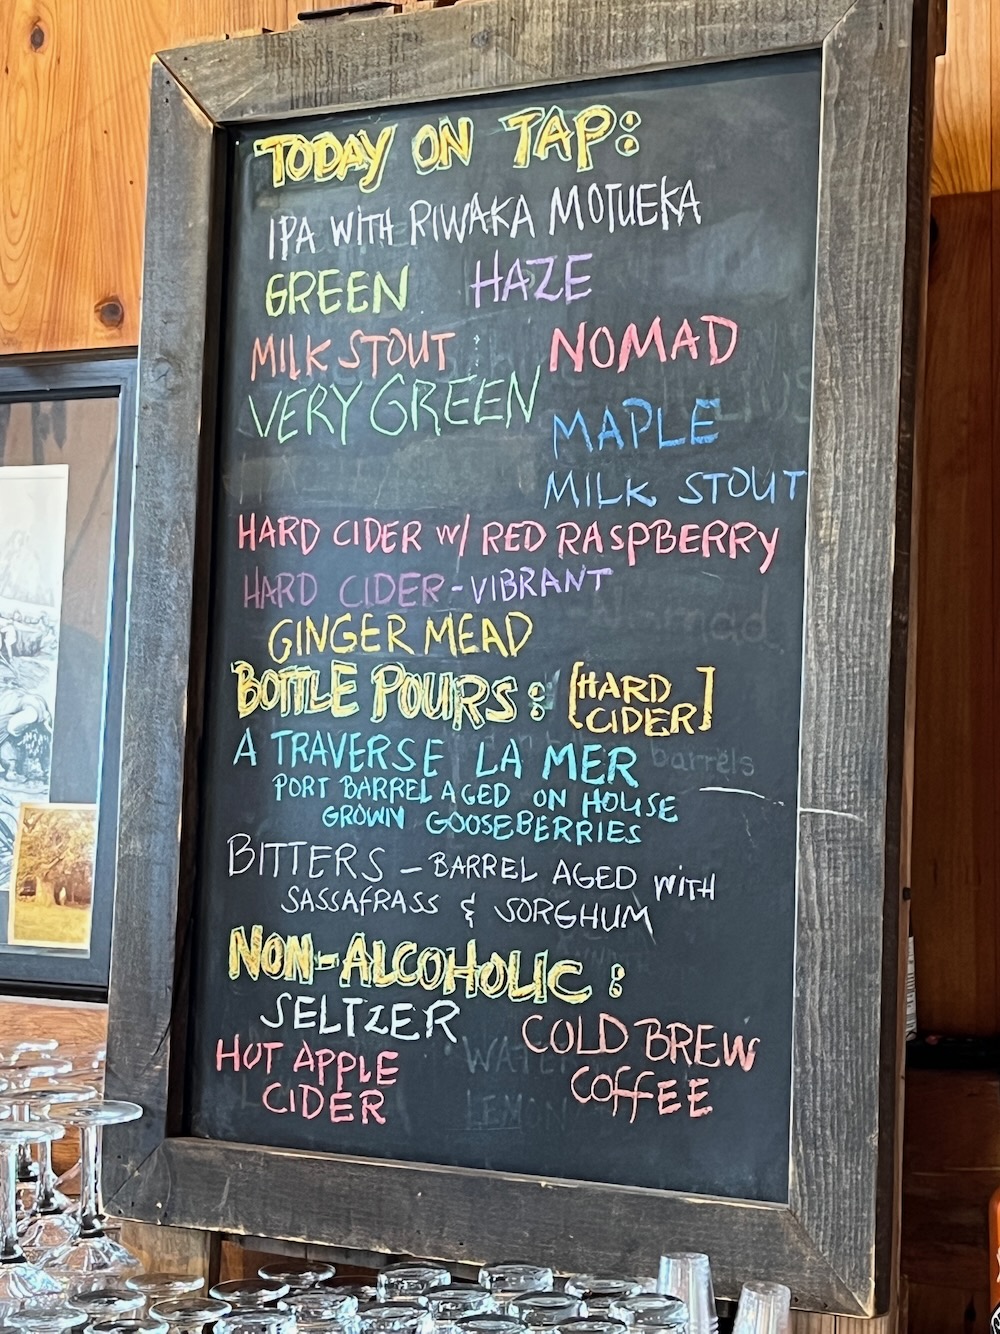 TODAY ON TAP:
IPA WITH RIWAKA MOTUEKA
GREEN HAZE
MILK STOUT NOMAD
VERY GREEN
MAPLE
MILK STOUT
HARD CIDER W/ RED RASPBERRY
HARD CIDER - VIBRANT
Nomad
GINGER MEAD
BOTTLE POURS: [HARD
CIDER]
A TRAVERSE LA MER
barrels
PORT BARREL AGED ON HOUSE
GROWN GOOSEBERRIES
BITTERS - BARREL AGED WITH
SASSAFRASS & SORGHUM
NON-ALCOHOLIC:
SELTZER
COLD BREW
COFFEE
HOT APPLE
CIDER
WATER
LEMON